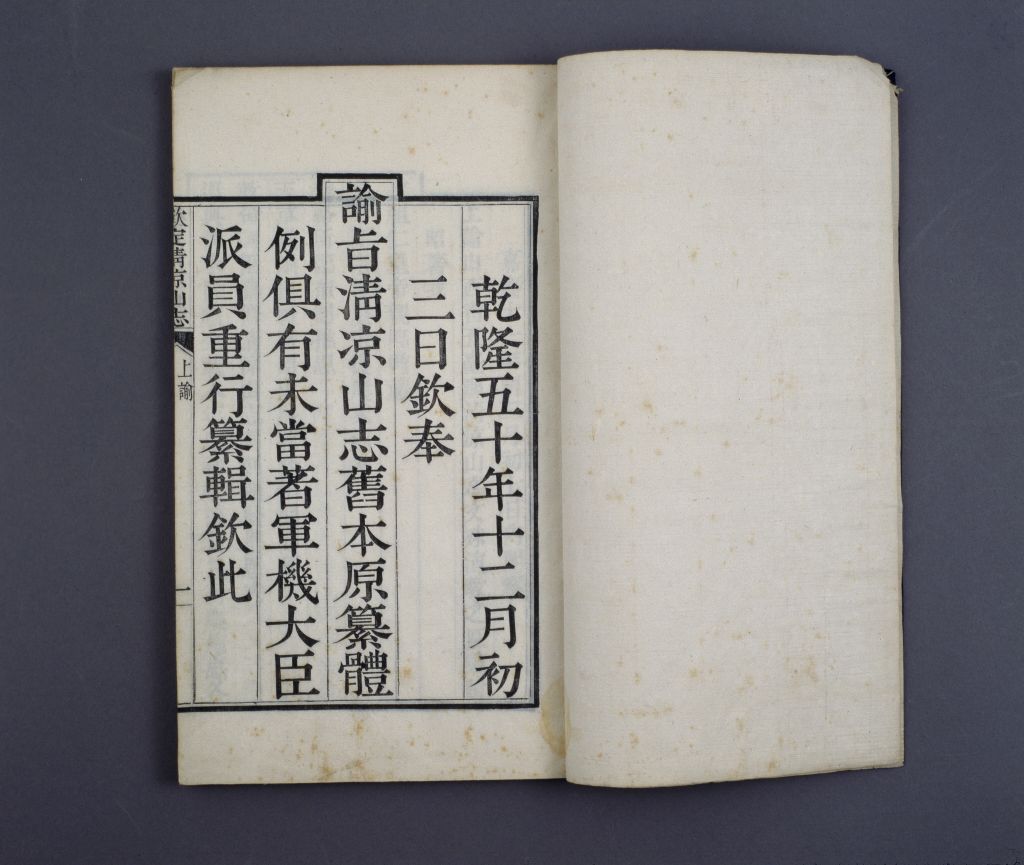 乾隆五十年十二月初
三日欽奉
諭旨淸凉山志舊本原纂體
例俱有未當著軍機大臣
派員重行纂輯欽此
欽定淸凉山志
上諭
一